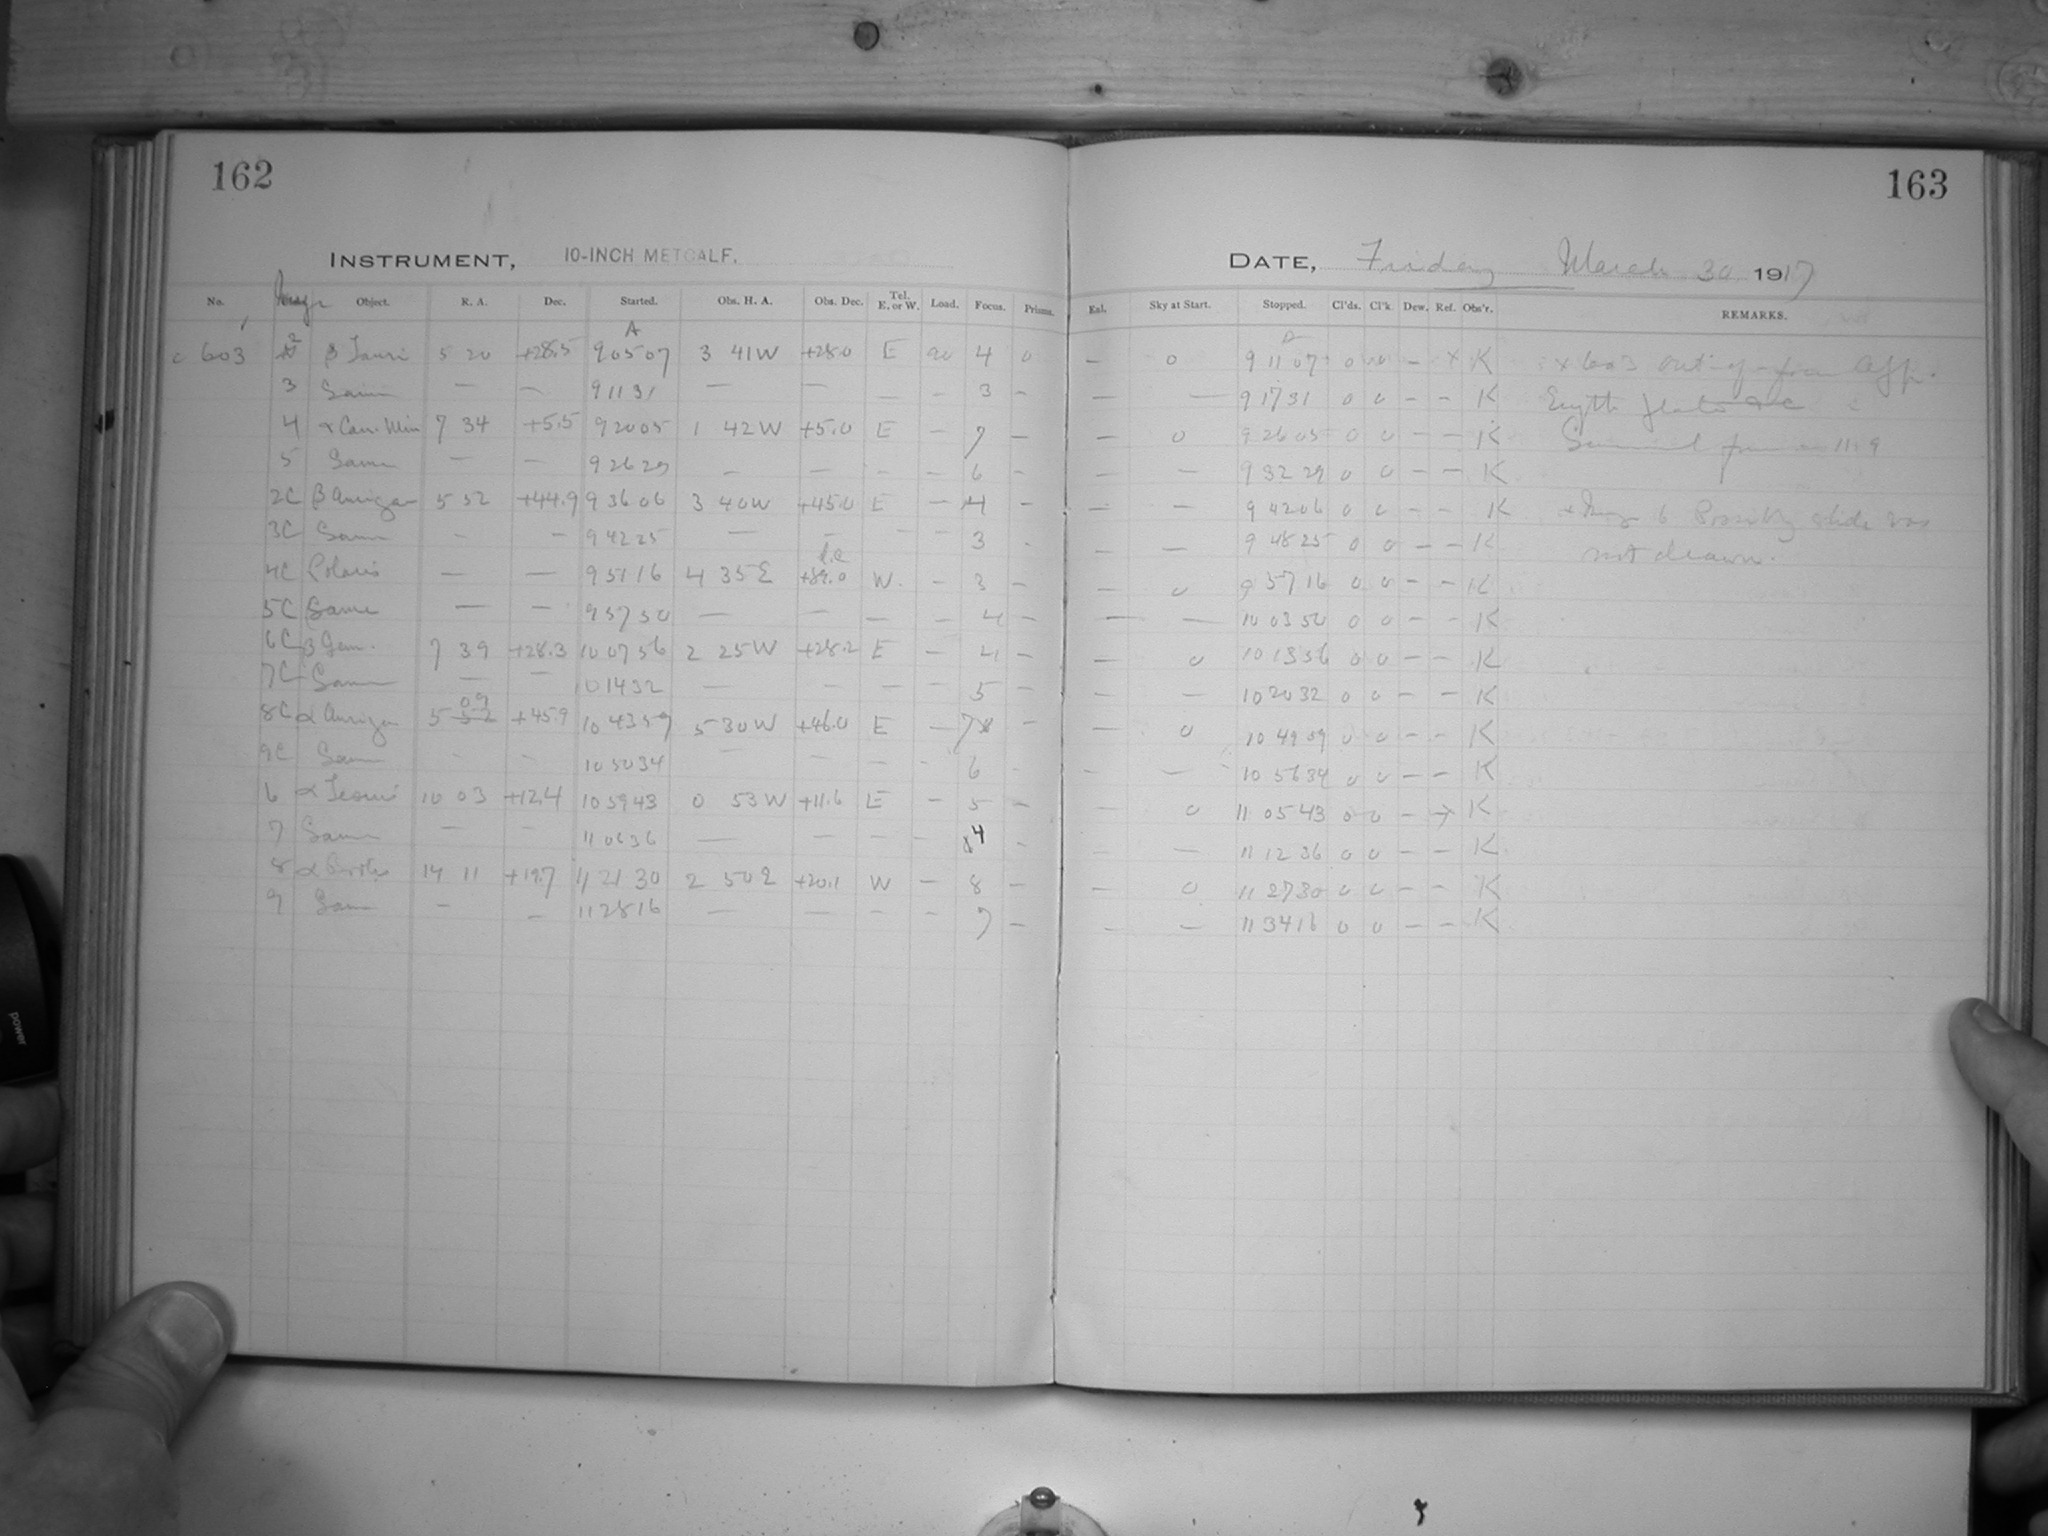 162
163
INSTRUMENT, 10-INCH METCALF.
DATE, Friday March 30 1917
No. Image Object. R. A. Dec. Started. Obs. H. A. Obs. Dec. Tel. E. or W. Load. Focus. Prisms. Eal. Sky at Start. Stopped. Cl'ds. Cl'k. Dew. Ref. Obs'r. REMARKS.
c 603 2 β Tauri 5 20 +28.5 9 05 07 3 41 W +28.0 E 20 4 0 — 0 9 11 07 0 0 — x K x 603 out of focus
3 Same — — 9 11 31 — — — — 3 – — — 9 17 31 0 0 – – K
4 α Can. Min 7 34 +5.5 9 20 05 1 42 W +5.0 E – 7 – — 0 9 26 05 0 0 – – K
5 Same — — 9 26 29 – – – – 6 – — — 9 32 29 0 0 – – K
2C β Aurigae 5 52 +44.9 9 36 06 3 40 W +45.0 E – 4 – – – 9 42 06 0 0 – – K Possibly slide was
3C Same – – 9 42 25 — – – – 3 - – — 9 48 25 0 0 – – K not drawn.
4C Polaris — — 9 51 16 4 35 E +89.0 W. – 3 – – 0 9 57 16 0 0 – – K
5C Same — – 9 57 50 — – – – 4 – — — 10 03 50 0 0 – – K
6C β Gem. 7 39 +28.3 10 07 56 2 25 W +28.2 E – 4 – – 0 10 13 56 0 0 – – K
7C Same — – 10 14 32 — – – – 5 – – – 10 20 32 0 0 – – K
8C α Aurigae 5 09 +45.9 10 43 59 5 30 W +46.0 E – 7 – — 0 10 49 59 0 0 – – K
9C Same - - 10 50 34 – – – - 6 - - — 10 56 34 0 0 – – K
6 α Leonis 10 03 +12.4 10 59 43 0 53 W +11.6 E – 5 – – 0 11 05 43 0 0 – x K
7 Same — - 11 06 36 — – - - 4 - – — 11 12 36 0 0 – – K
8 α Bootis 14 11 +19.7 11 21 30 2 50 E +20.1 W – 8 – – 0 11 27 30 0 0 – – K
9 Same – – 11 28 16 — — – - 7 – – — 11 34 16 0 0 – – K
power